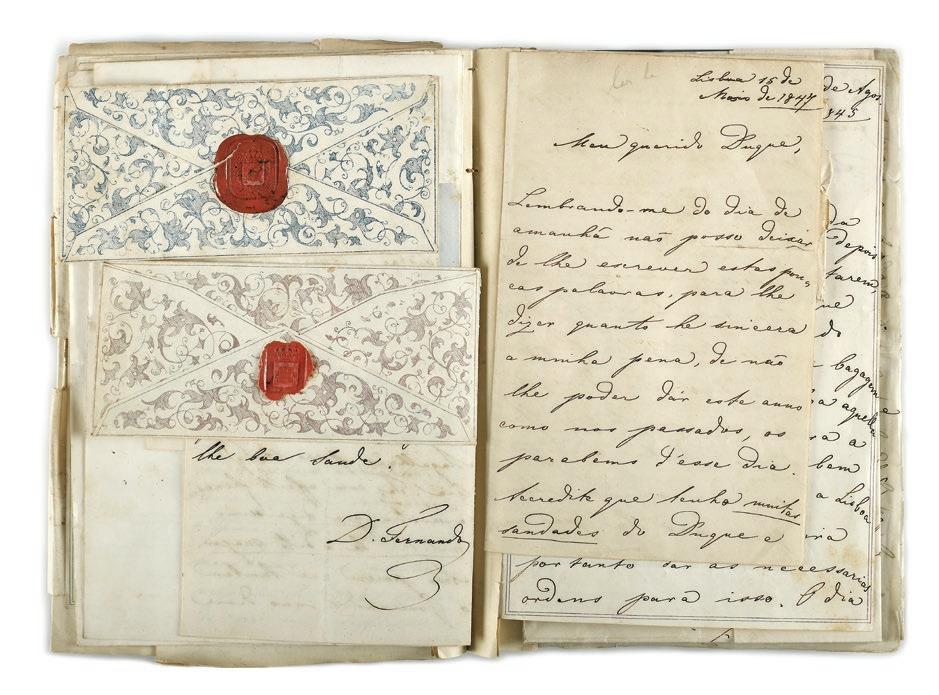 lhe boa saude.
D. Fernando
Lisboa 15 de
Maio de 1847
Meu querido Duque,
Lembrando-me do dia de
amanhã não posso deixar
de lhe escrever estas pou-
cas palavras, para lhe
dizer quanto he sincera
a minha pena, de não
lhe poder dár este anno
como nos passados, os
parabems d'esse dia.
Acredite que tenho muitas
saudades do Duque e
de Agos
1845
depois
tarem,
bagagem e
aquella
a
bem
a Lisboa
portanto dar as necessarias
ordens para isso. O dia